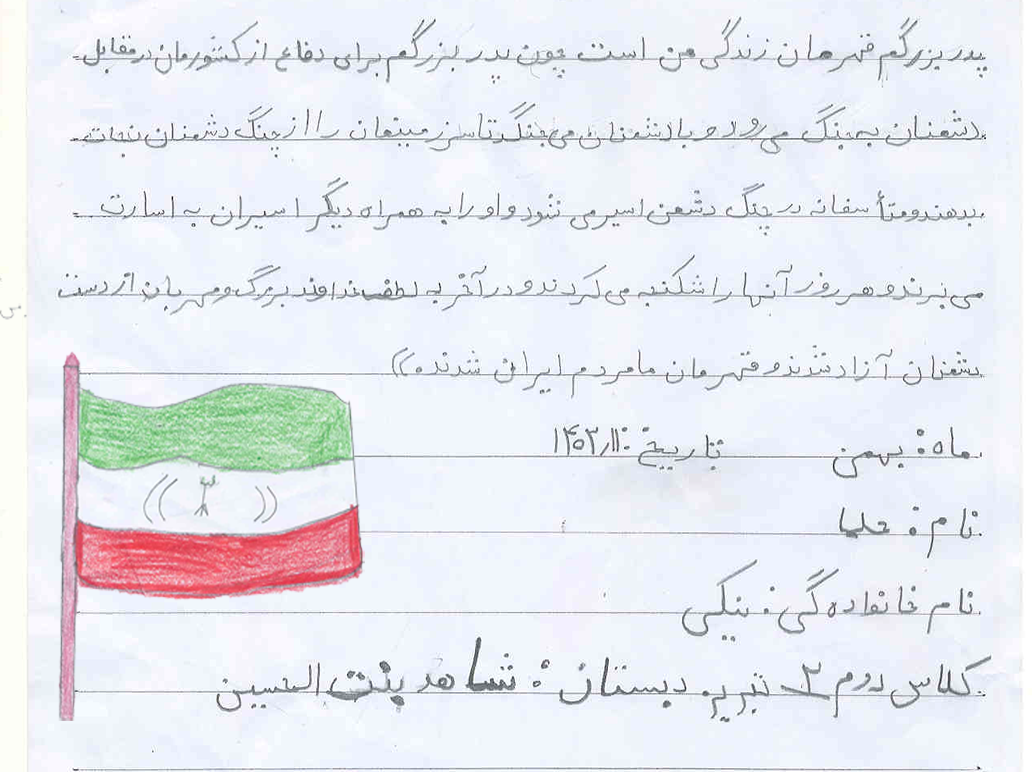 پدربزرگم قهرمان زندگی من است چون پدربزرگم برای دفاع از کشورمان در مقابل
دشمنان به جنگ می رود و با دشمنان می جنگد تا سرزمینمان را از چنگ دشمنان نجات
بدهند و متأسفانه در جنگ دشمن اسیر می شود و او را به همراه دیگر اسیران به اسارت
می برند و هر روز آنها را شکنجه می کردند و در آخر به لطف خداوند بزرگ و مهربان از دست
دشمنان آزاد شدند و قهرمان ما مردم ایران شدند.))
ماه: بهمن تاریخ: ۱۴۰۳٫۱۱
نام:
نام خانوادگی:
کلاس دوم ۲ تبریز دبستان: شاهد بنت الحسین